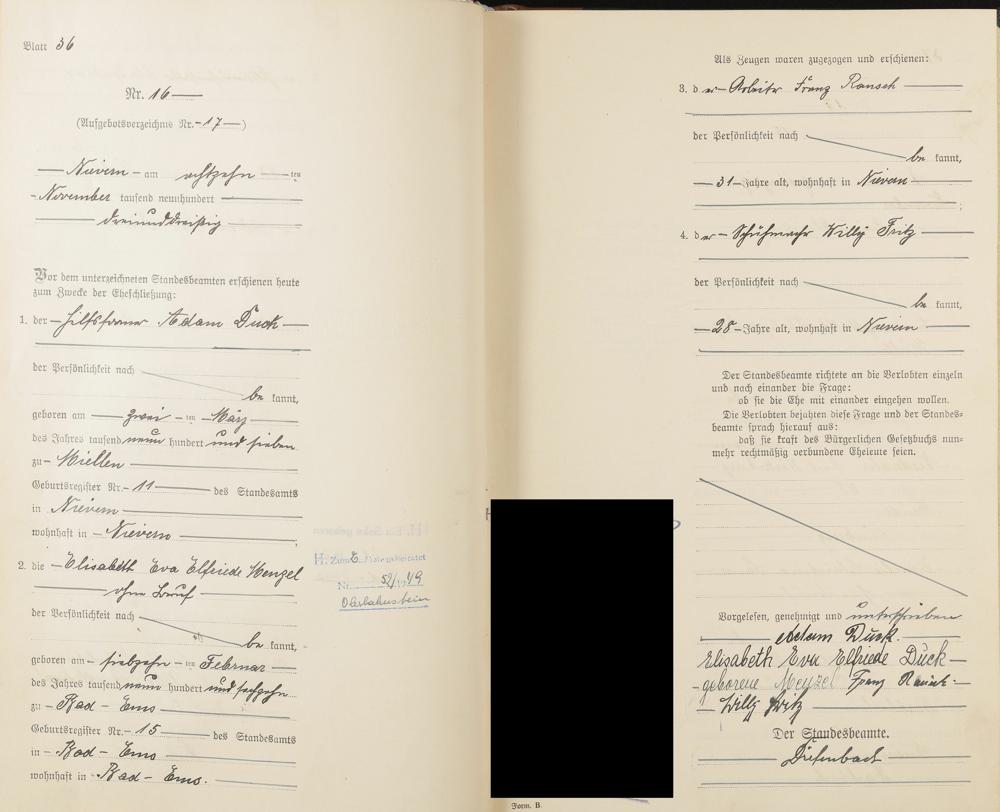 Blatt 36
Nr. 16
(Aufgebotsverzeichnis Nr. 17)
Nievern am achtzehn ten
November tausend neunhundert
dreiunddreißig
Vor dem unterzeichneten Standesbeamten erschienen heute
zum Zwecke der Eheschließung:
1. der Hilfsformer Adam Duck
der Persönlichkeit nach
be kannt,
geboren am zwei ten März
des Jahres tausend neun hundert und sieben
zu Miellen
Geburtsregister Nr. 11 des Standesamts
in Nievern
wohnhaft in Nievern
2. die Elisabeth Eva Elfriede Menzel
ohne Beruf
der Persönlichkeit nach
be kannt,
geboren am siebzehn ten Februar
des Jahres tausend neun hundert und sechzehn
zu Bad-Ems
Geburtsregister Nr. 15 des Standesamts
in Bad-Ems
wohnhaft in Bad-Ems.
H. Zum 2.
Nr. 52/1949
Oberlahnstein
Als Zeugen waren zugezogen und erschienen:
3. der Arbeiter Franz
der Persönlichkeit nach
be kannt,
31 Jahre alt, wohnhaft in Nievern
4. der Schuhmacher Willy Fritz
der Persönlichkeit nach
be kannt,
28 Jahre alt, wohnhaft in Nievern
Der Standesbeamte richtete an die Verlobten einzeln
und nach einander die Frage:
ob sie die Ehe mit einander eingehen wollen.
Die Verlobten bejahten diese Frage und der Standes-
beamte sprach hierauf aus:
daß sie kraft des Bürgerlichen Gesetzbuchs nun-
mehr rechtmäßig verbundene Eheleute seien.
Vorgelesen, genehmigt und unterschrieben
Adam Duck.
Elisabeth Eva Elfriede Duck
geborene Menzel Franz
Willy Fritz
Der Standesbeamte.
Diefenbach
Form. B.